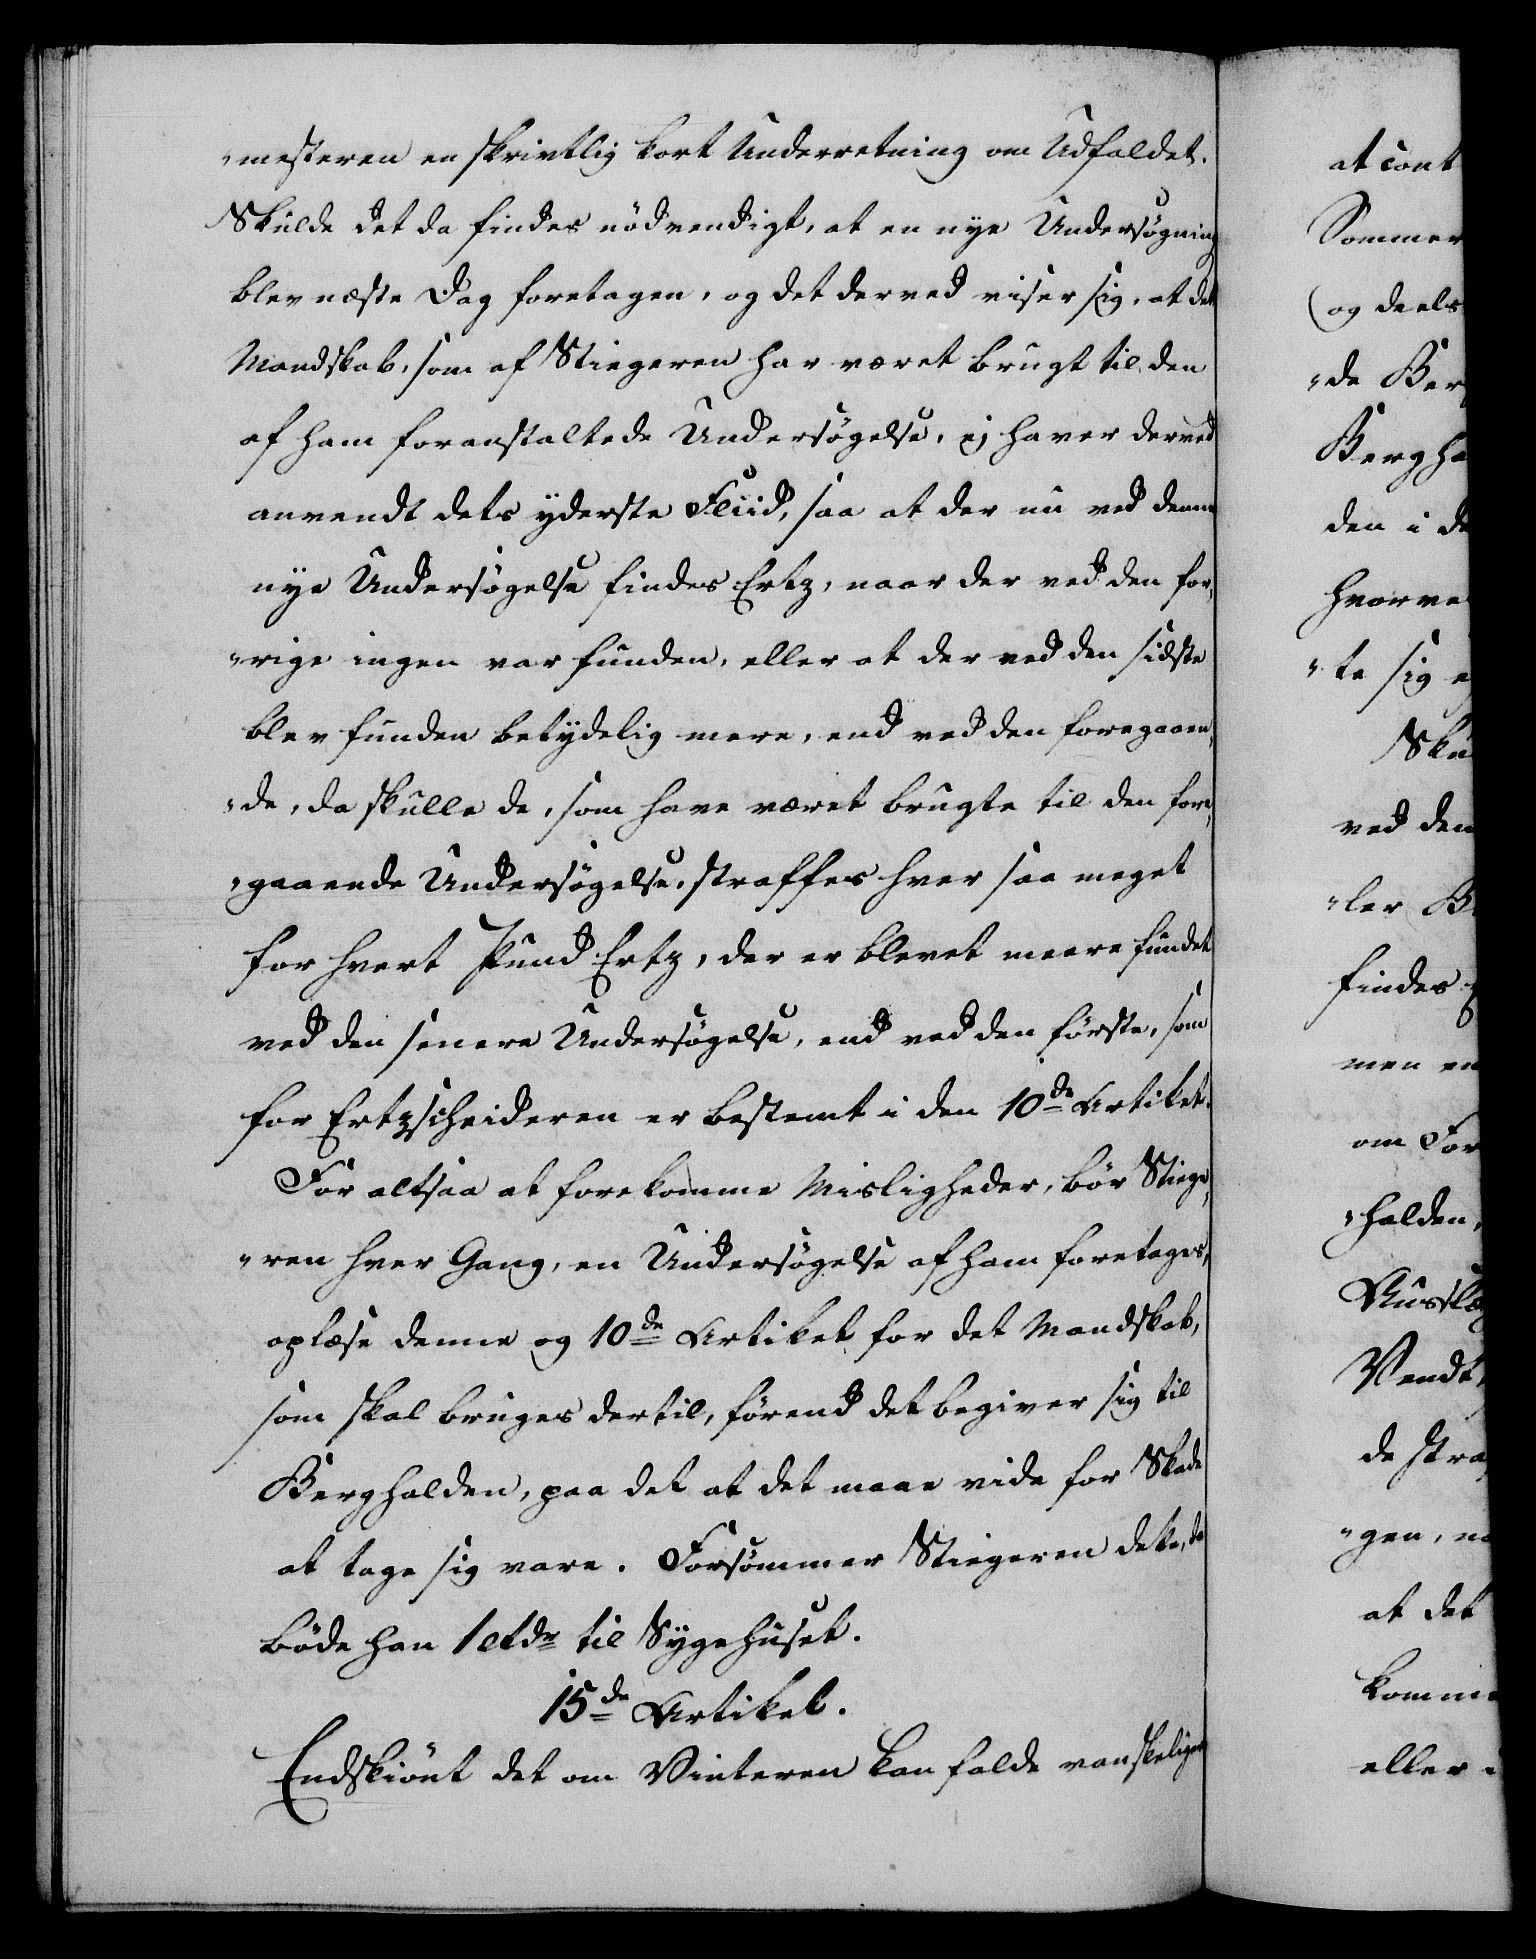 „mesteren en skrivtlig kort Underretning om Udfaldet.
Skulde det da findes nödvendigt, at en nye Undersögning
blev næste Dag foretagen, og det derved viser sig, at det
Mandskab, som af Stiegeren har været brugt til den
af ham foranstaltede Undersögelse, ej haver derved
anvendt dets yderste Fliid, saa at der nu ved denne
nye Undersögelse findes Ertz, naar der ved den for„
„rige ingen var funden, eller at der ved den sidste
blev funden betydelig mere, end ved den foregaaen„
„de, da skulle de, som have været brugte til den fore„
„gaaende Undersögelse, straffes hver saa meget
for hvert Pund Ertz, der er blevet meere fundet
ved den senere Undersögelse, end ved den förste, som
for Ertzscheideren er bestemt i den 10de Artikel.
For altsaa at forekomme Misligheder, bör Stiege„
„ren hver Gang, en Undersögelse af ham foretages,
oplæse denne og 10de Artikel for det Mandskab,
som skal bruges dertil, förend det begiver sig til
Berghalden, paa det at det maae vide for Skade
at tage sig vare. Forsömmer Stiegeren dette, da
böde han 1 Rdr til Sygehuset.
15de Artikel.
Endskiönt det om Vinteren kan falde vanskeligere
at cont
Sommer
(og deels
„de Ber
Bergha
den i de
hvorve
„te sig
Sku
ved den
„ler
findes
men en
om For
„halden,
Vendt
de stra
„gen,
at det
komme
eller